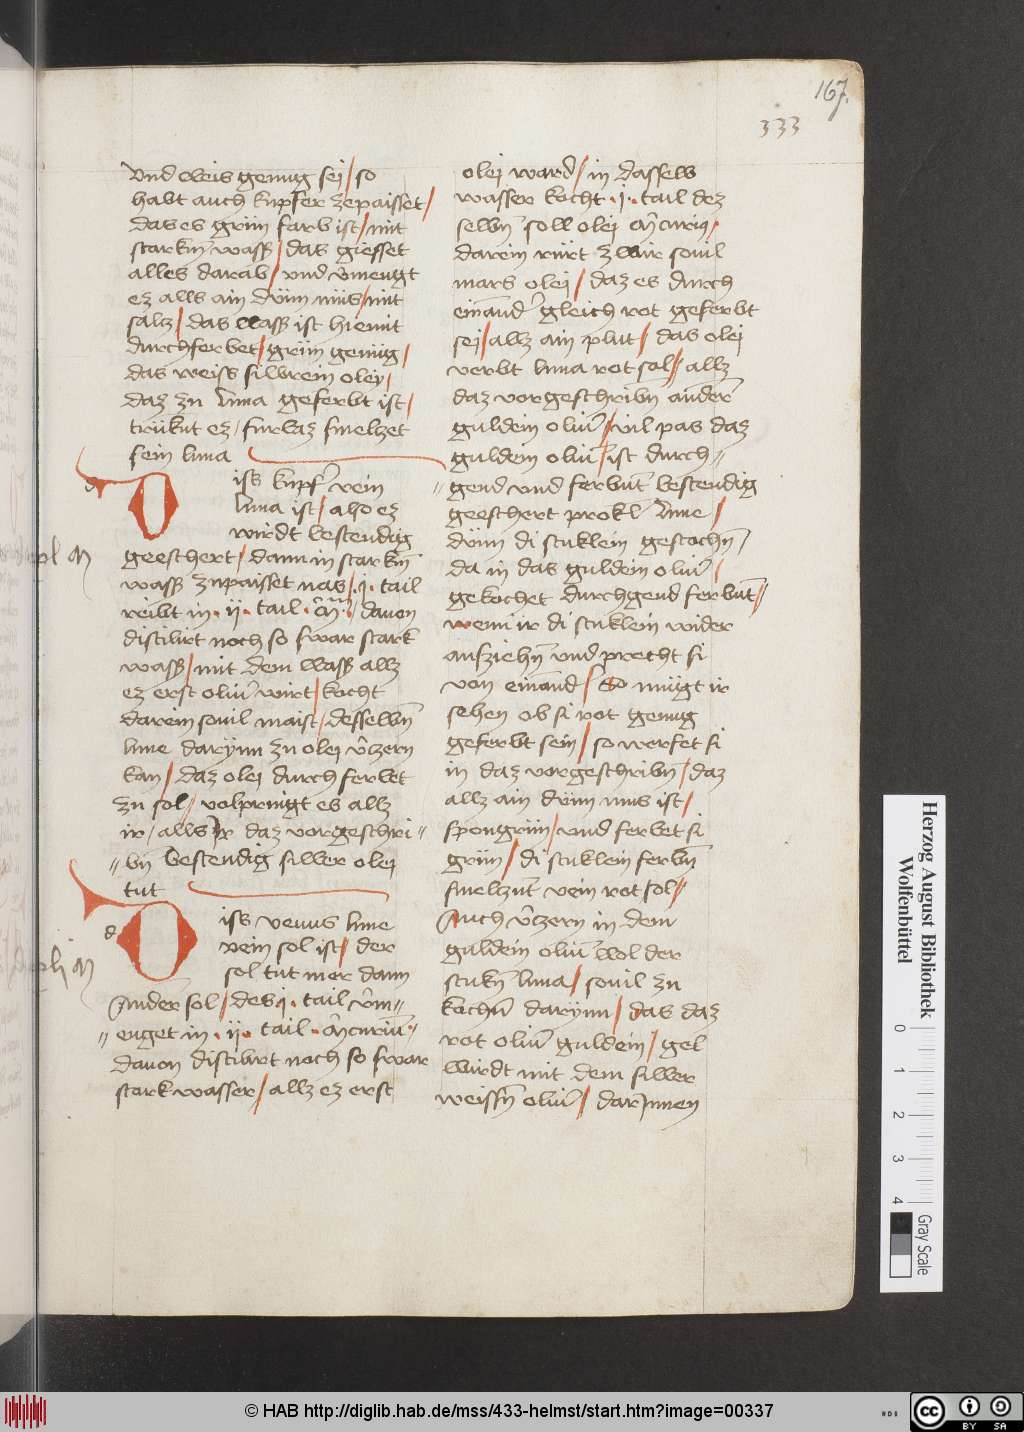 167.
333
vnd weis genug sej / so
habt auch kupfer zepaisset /
das es grün farb ist / mit
starkm̄ wass / das giesset
alles darab / vnd vmengt
ez alls ain dünn mus / mit
salcz / das wass ist hiemit
durchferbet / grün genüg /
das weiss silbrein oley /
daz zu luna geferbt ist /
trüknt ez / furbaz smelzet
sein luna
Diss kupfer rein
luna ist / also ez
wirdt bestendig
geeschert / dann in starkm̄
wass zupaisset was / .j. tail
reibt in .ij. tail · davon
distilirt noch so swar stark
wass / mit dem wass allz
ez erst oliu wirt / kocht
darein souil maist / desselbn̄
lune darynn zu olej v̄czern
kan / daz olej durch ferbet
zu sol / volpringt es allz
ir / alls ir daz vorgeschri//
//bn̄ bestendig silber olej
tut
Diss venus lune
rein sol ist / der
sol tut mer dann
Ander sol / des j. tail v̄m//
//enget in .ij. tail
davon distilirt noch so swar
stark wasser / allz ez erst
olej ward / in dasselb
wasser kocht .j. tail dez
selbn̄ soll olej
darin rürt zwir souil
mars olej / daz es durch
einand gleich rot geferbt
sej / allz ain plut / das olej
verbt luna rot sol // allz
daz vorgeschribn̄ ander
guldein oliu / wil pas daz
guldein oliu / ist durch//
//gend vnd ferbūt bestendig
geeschert prokl lune /
dünn di stuklein gestochn̄ /
da in das guldein oliu /
gekochet durchgend ferbūt //
wenn ir di stuklein wider
aufziehn̄ vnd precht si
von einand / So mügt ir
sehen ob si rot genug
geferbt sein / so werfet si
in daz vorgeschribn̄ / daz
allz ain dünn mus ist /
spongrün / vnd ferbet si
grün / di stuklein ferbn̄
smelzūt rein rot sol //
Auch v̄czern in dem
guldein oliu wol der
stukn̄ luna / souil zu
kochn̄ darynn / das daz
rot oliu guldein / gel
wirdt mit dem silber
weissn̄ oliu / darynnen
Herzog August Bibliothek
Wolfenbüttel
0 1 2 3 4
Gray Scale
© HAB http://diglib.hab.de/mss/433-helmst/start.htm?image=00337
HAB
CC BY SA